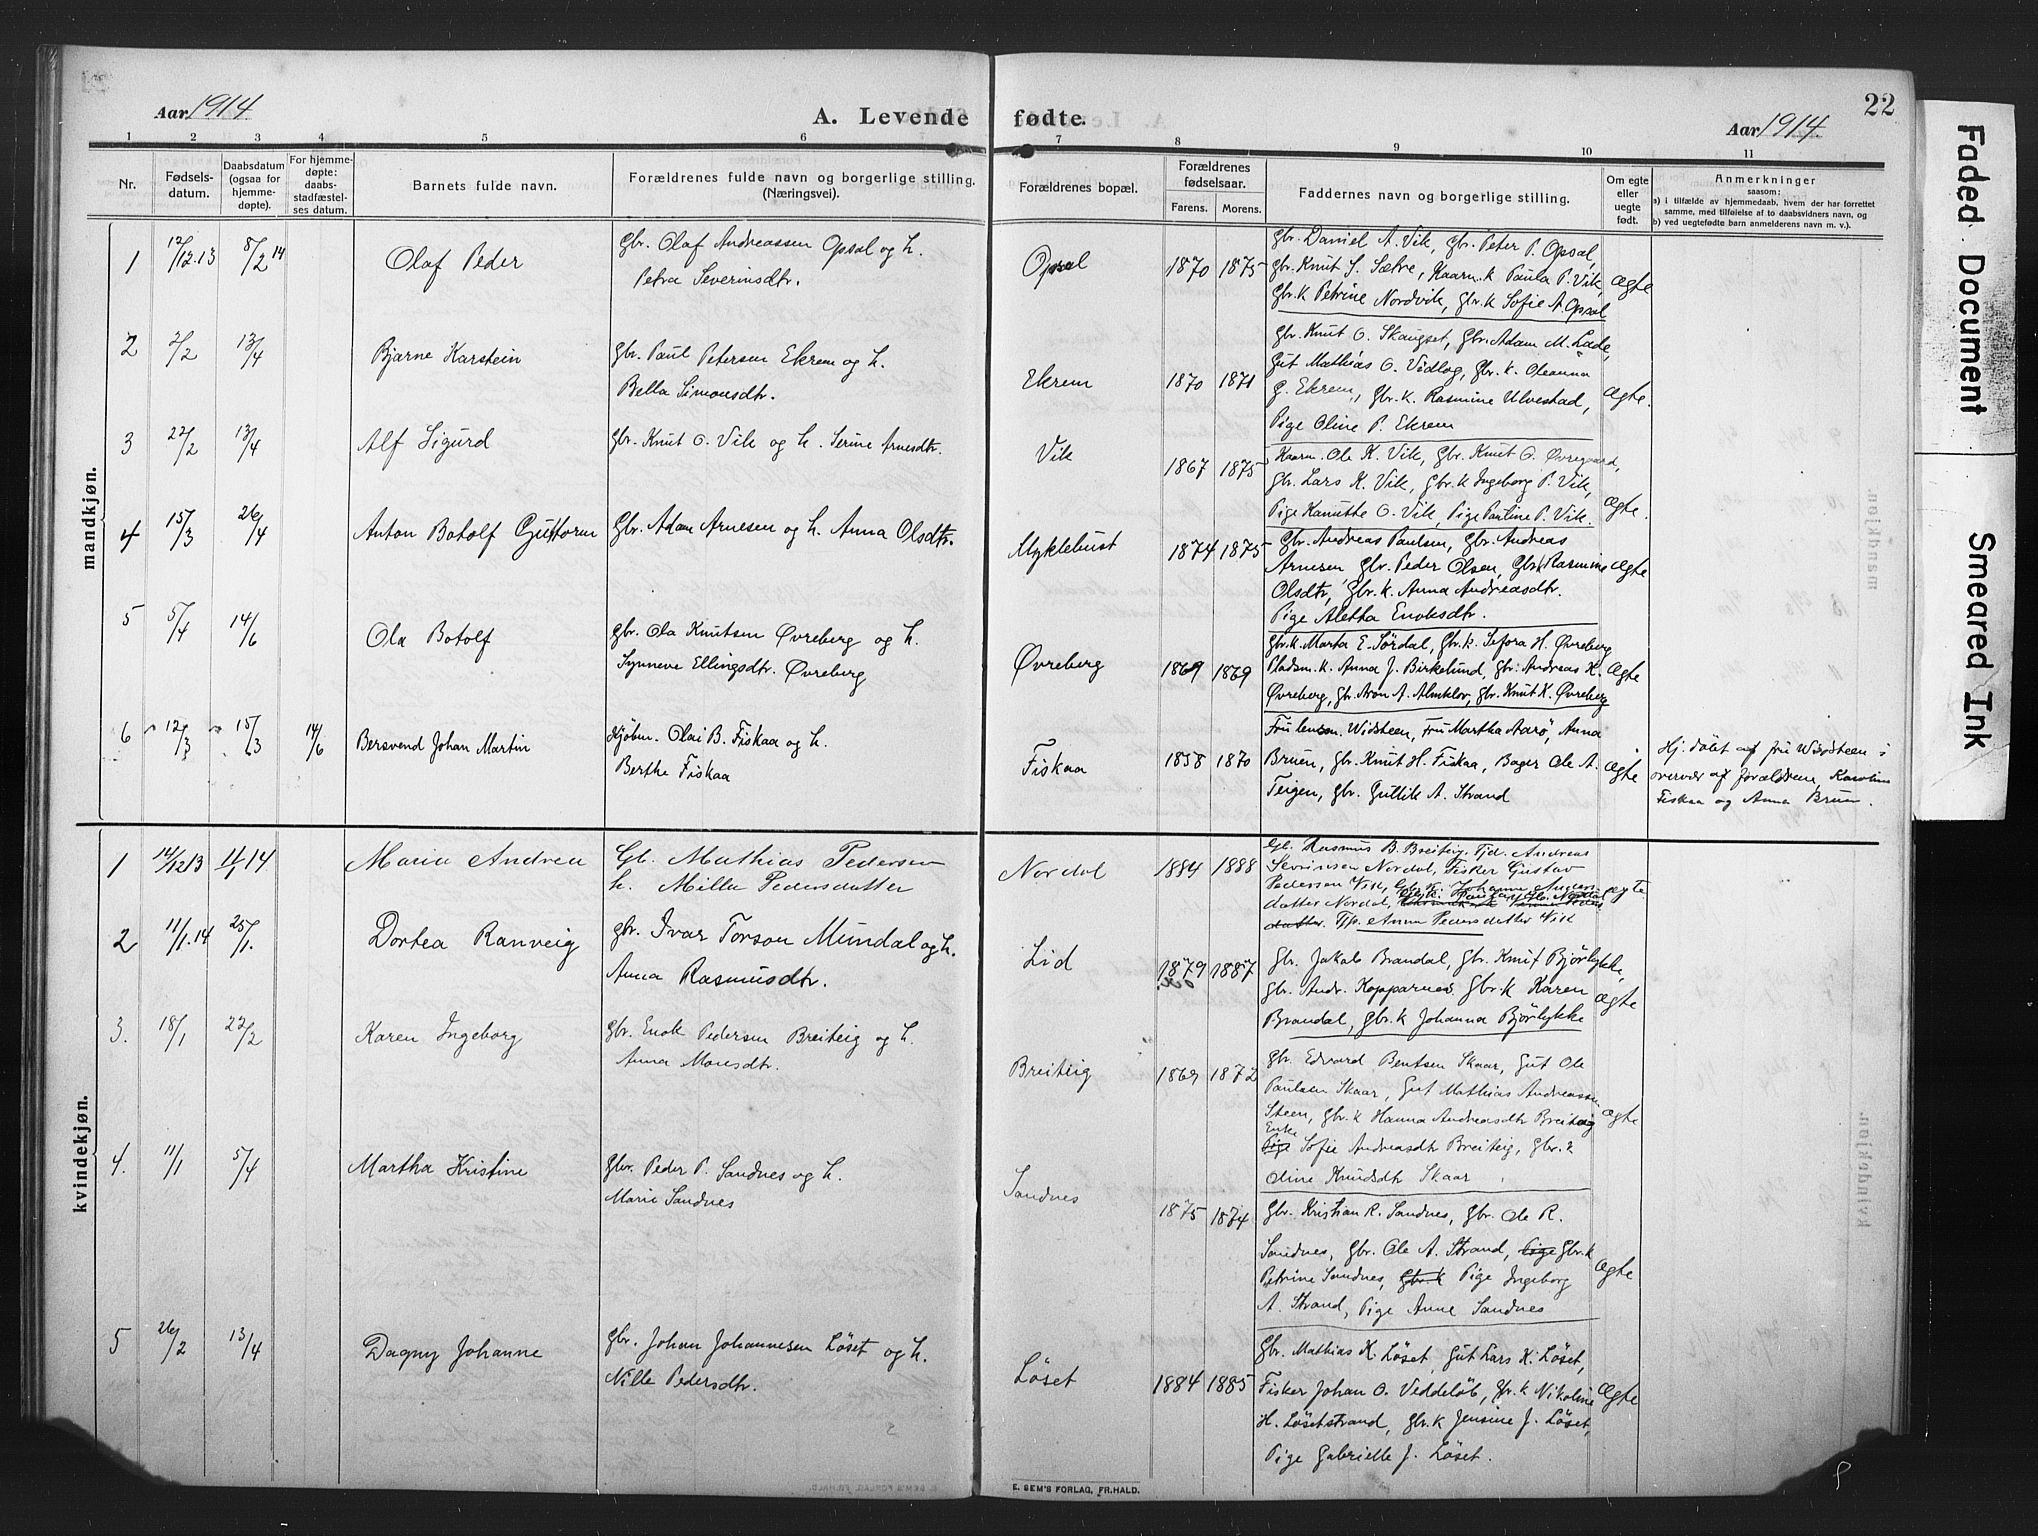 Aar 1914
A. Levende fødte.
Aar 1914.
22
1 2 3 4 5 6 7 8 9 10 11
Nr.
Fødsels-
datum.
Daabsdatum
(ogsaa for
hjemme-
døpte).
For hjemme-
døpte:
daabs-
stadfæstel-
ses datum.
Barnets fulde navn.
Forældrenes fulde navn og borgerlige stilling.
(Næringsvei).
Forældrenes bopæl.
Forældrenes
fødselsaar.
Farens. Morens.
Faddernes navn og borgerlig stilling.
Om egte
eller
uegte
født.
Anmerkninger
saasom:
a) i tilfælde av hjemmedaab, hvem der har forrettet
samme, med tilføielse af to daabsvidners navn, og
b) ved uegtefødte barn anmelderens navn m. v.).
mandkjøn.
1 12/12.13 8/2 14
Olaf Peder
Gbr. Olaf Andreassen Opsal og h.
Petra Severinsdtr.
Opsal
1870 1875
Gbr. Daniel A. Vik, Gbr. Peter P. Opsal,
Gbr. Knut S. Sætre, Kaarm. k Paula P. Vik,
Gbr. k Petrine Nordvik, Gbr. k Sofie A. Opsal
Ægte
2 2/2 13/4
Bjarne Karstein
Gbr. Paul Petersen Ekrem og h.
Bella Simonsdtr.
Ekrem
1870 1871
Gbr. Knut O. Skaugset, Gbr. Adam M. Lade,
Gut Mathias O. Vedlog, Gbr. k. Oleanna
G. Ekrem, Gbr. k. Rasmine Ulvestad,
Pige Oline P. Ekrem
Ægte.
3 22/2 13/4
Alf Sigurd
Gbr. Knut O. Vik og h. Serine Arnesdtr.
Vik
1867 1875
Kaarm. Ole K. Vik, Gbr. Knut O. Øvregaard,
Gbr. Lars K. Vik, Gbr. k Ingeborg P. Vik,
Pige Kanutte O. Vik, Pige Pauline P. Vik.
Ægte.
4 15/3 26/4
Anton Botolf Guttorm
Gbr. Adam Arnesen og h. Anna Olsdtr.
Myklebust
1874 1875
Gbr. Andreas Paulsen, Gbr. Andreas
Arnesen Gbr. Peder Olsen, Gbr. k Rasmine
Olsdtr, Gbr. k. Anna Andreasdtr.
Pige Aletta Enoksdtr.
Ægte
5 5/4 14/6
Ola Botolf
Gbr. Ola Knutsen Øvreberg og h.
Synneve Ellingsdtr. Øvreberg
Øvreberg
1869 1869
Gbr. k. Marta E. Sørdal, Gbr. k. Sefora H. Øvreberg
Pladsm. k. Anna J. Birkelund, Gbr. Andreas K.
Øvreberg, Gbr. Aron A. Almklov, Gbr. Knut K. Øvreberg
Ægte
6 12/3 15/3 14/6
Bersvend Johan Martin
Kjøbm. Olai B. Fiskaa og h.
Berthe Fiskaa
Fiskaa
1858 1870
Fru lensm. Widsteen, Fru Martha Aarø, Anna
Bruen, Gbr. Knut H. Fiskaa, Bager Ole A.
Teigen, Gbr. Guttik A. Strand
Ægte
Hj. døbt af fru Widsteen i
overvær af forældrene Karoline
Fiskaa og Anna Bruen.
kvindekjøn.
1 14/12 13 1/1 14
Maria Andrea
Gb. Mathias Pedersen
h. Milla Pedersdatter
Nordal
1884 1888
Gb. Rasmus B. Breitig. Tjd. Andreas
Sevrinsen Nordal, Fisker Gustav
Pedersen Vik, Gbr. k. Johanne Anders
datter Nordal,
datter. Pp. Anna Pedersdatter Vik
Ægte
2 11/1.14 25/1.
Dortea Ranveig
Gbr. Ivar Torson Mundal og h.
Anna Rasmusdtr.
Lid
1879 1887
Gbr. Jakob Brandal, Gbr. Knut Bjørlykke,
Gbr. Andr. Kopparnes Gbr. k Karen
Brandal, Gbr. k Johanna Bjørlykke
Ægte
3. 18/1 22/2
Karen Ingeborg
Gbr. Enok Pedersen Breiteig og h.
Anna Monsdtr.
Breiteig
1869 1872
Gbr. Edvard Bentsen Skaar, Gut Ole
Paulsen Skaar, Gut Mathias Andreassen
Steen, Gbr. k Hanna Andreasdtr Breiteig
Enke
Pige Sofie Andreasdtr Breiteig, Gbr. k
Oline Knudsdtr Skaar
Ægte
4. 11/1 5/4
Martha Kristine
Gbr. Peder P. Sandnes og h.
Marie Sandnes
Sandnes
1875 1874
Gbr. Kristian R. Sandnes, Gbr. Ole R.
Sandnes, Gbr. Ole A. Strand, Pige Gbr. k
Petrine Sandnes, Gbr. k Pige Ingeborg
A. Strand, Pige Anne Sandnes
Ægte
5 26/2 13/4
Dagny Johanne
Gbr. Johan Johannesen Løset og h.
Nille Pedersdtr.
Løset
1884 1885
Gbr. Mathias K. Løset, Gut Lars K. Løset,
Fisker Johan O. Veddeløb, Gbr. k Nikoline
H. Løsetstrand, Gbr. k Jensine J. Løset,
Pige Gabrielle J. Løset.
Ægte
E. SEM'S FORLAG, FR.HALD.
Faded Document
Smeared Ink